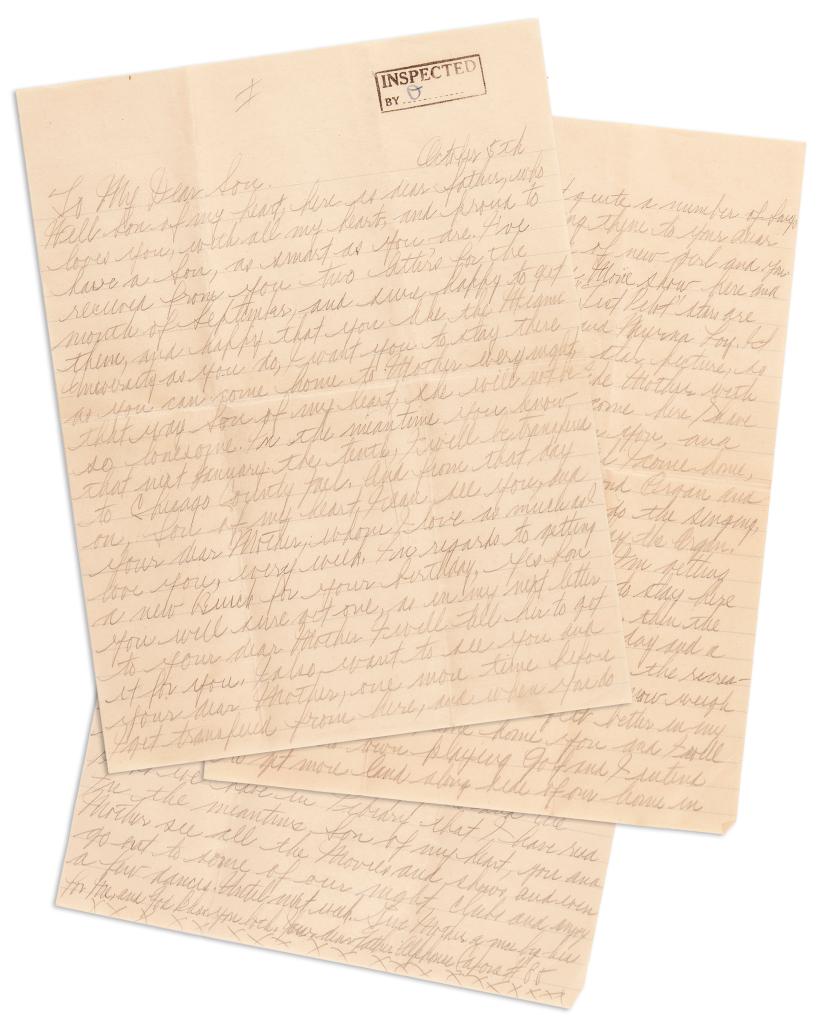 INSPECTED
BY
October 5th
To My Dear Son.
Well Son of my heart, here is dear father, who
loves you, with all my heart, and proud to
have a Son, as smart as you are. I've
received from you two letters for the
month of September, and sure happy to get
them, and happy that you like the Miami
as you do, I want you to stay there
as you can come home to Mother every night
that way Son of my heart, she will not be
so lonesome. In the meantime you know
that next January the tenth, I will be transfered
to Chicago County Jail. And from that day
on, Son of my heart, I can see you, and
your dear Mother, whom I love as much as I
love you, every week. In regards to getting
a new Buick for your birthday, yes Son
you will sure get one, as in my next letter
to your dear Mother I will tell her to get
it for you. I also want to see you and
your dear Mother, one more time before
I get transfered from here, and when you do
quite a number of songs
them to your dear
of new girl and you
Movie show here and
Test Pilot" stars are
and Myrna Loy. It
star, picture, so
Mother with
come here I have
you, and
I come home,
and Organ and
do the singing,
the Organ.
I'm getting
to stay here
then the
day and a
the recrea-
now weigh
better in my
home, you and I will
town playing Golf and I intend
get more land along side of our home in
in Library that I have read
In the meantime, Son of my heart, you and
Mother see all the Movies and shows, and even
go out to some of our night clubs and enjoy
a few dances. Until next week. Give Mother a nice big kiss
for me, and God bless you both, Your dear father Alphonse Capone # 85
XXXXXXXXXX